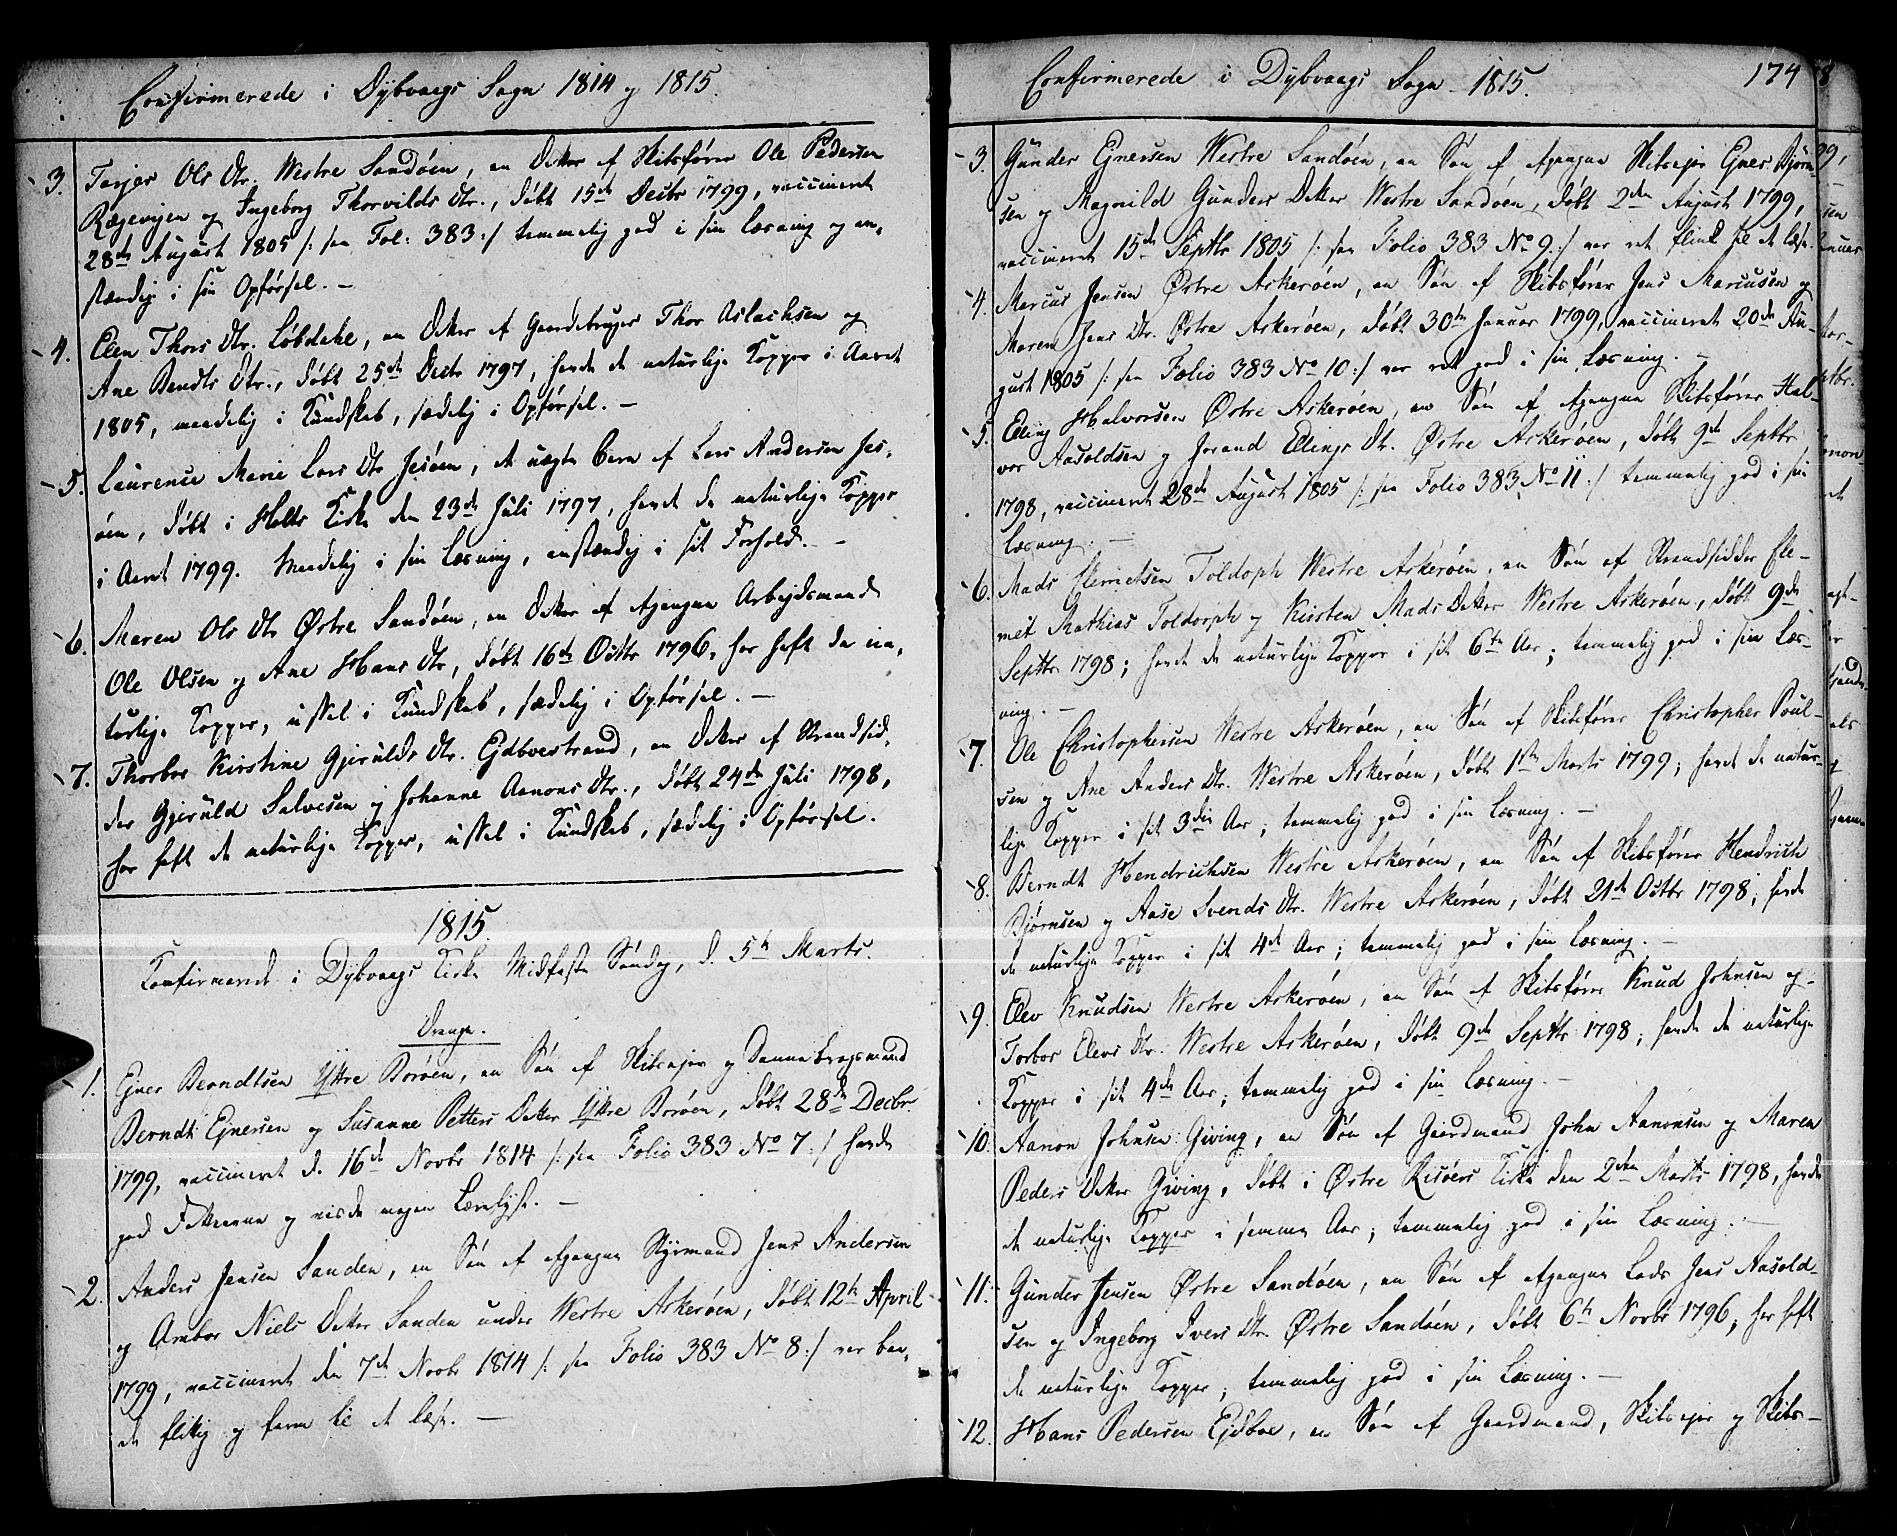 Confirmerede i Dybvaags Sogn 1814 og 1815.
3. Torjer Ols Dtr. Westre Sandöen, en Dotter af Skibsförer Ole Pedersen
Ragevigen og Ingeborg Thorvilds Dtr., döbt 15de Decbr 1799, vaccineret
28de August 1805 /: see Fol: 383:/ temmelig god i sin Læsning og an-
stændig i sin Opförsel. –
4. Elen Thors Dtr. Löbdahl, en Dotter af Gaardebruger Thor Aslachsen og
Ane Bendts Dtr., döbt 25de Decbr 1797, havde de naturlige Kopper i Aaret
1805, maadelig i Kundskab, sædelig i Opförsel. –
5. Laurence Marie Lars Dtr Jesöen, et uægte Barn af Lars Andersen Jes-
öen, döbt i Holts Kirke den 23de Juli 1797, havt de naturlige Kopper
i Aaret 1799. Maadelig i sin Læsning, anstændig i sit Forhold. –
6. Maren Ols Dtr Östre Sandöen, en Dotter af afgangne Arbejdsmand
Ole Olsen og Ane Hans Dtr, döbt 16de Octbr 1796, har haft de na-
turlige Kopper, ussel i Kundskab, sædelig i Opförsel. –
7. Thorbor Kirstine Gjerulds Dtr. Ejdbostrand, en Dotter af Strandsid-
der Gjeruld Salvesen og Johanne Aanons Dtr., döbt 24de Juli 1798,
har haft de naturlige Kopper, ussel i Kundskab, sædelig i Opförsel.
1815.
Konfirmered i Dybvaags Kirke Midfaste Söndag, d. 5te Marts.
Drenge.
1. Ejner Berndtsen Ytre Boröen, en Sön af Skibsejer og Dannebrogsmand
Berndt Ejnersen og Susanne Petters Dotter Ytre Boröen, döbt 28de Decbr.
1799, vaccineret d. 16de Novbr 1814 /: see Folio 383 No 7:/ havde
god og viste megen Lærelyst. –
2. Anders Jensen Sanden, en Sön af afgangne Styrmand Jens Andersen
og Ambor Niels Dotter Sanden under Westre Askeröen, döbt 12te April
1799, vaccineret den 7de Novbr 1814 /: see Folio 383 No 8:/ var baa-
de flittig og farm til at læse. –
Confirmerede i Dybvaags Sogn 1815.
174
3. Gunder Ejnersen Westre Sandöen, en Sön af afgangne Skibsejer Ejner Björn-
sen og Magnild Gunders Dotter Westre Sandöen, döbt 2den August 1799,
vaccineret 15de Septbr 1805 /: see Folio 383 No 9:/ var ret flink til at læse.
4. Marcus Jensen Östre Askeröen, en Sön af Skibsförer Jens Marcussen og
Maren Jens Dtr. Östre Askeröen, döbt 30te Januar 1799, vaccineret 20de Au-
gust 1805 /: see Folio 383 No 10:/ var ret god i sin Læsning. –
5. Elling Halvorsen Östre Askeröen, en Sön af afgangne Skibsförer Hal-
vor Aasoldsen og Jorand Ellings Dtr. Östre Askeröen, döbt 9de Septbr
1798, vaccineret 28de August 1805 /: see Folio 383 No 11:/ temmelig god i sin
Læsning. –
6. Mads Elemetsen Toldoph Westre Askeröen, en Sön af Strandsidder Ele-
met Mathias Toldorph og Kirsten Mads Dotter Westre Askeröen, döbt 9de
Septbr 1798; havde de naturlige Kopper i sit 6te Aar; temmelig god i sin Læs-
ning. –
7. Ole Christophersen Westre Askeröen, en Sön af Skibsförer Christopher Poul-
sen og Ane Anders Dtr. Westre Askeröen, döbt 1ste Marts 1799; havde de natur-
lige Kopper i sit 3die Aar; temmelig god i sin Læsning. –
8. Berndt Hendrichsen Westre Askeröen, en Sön af Skibsförer Hendrich
Björnsen og Aase Svends Dtr. Westre Askeröen, döbt 21de Octbr 1798; havde
de naturlige Kopper i sit 4de Aar; temmelig god i sin Læsning. –
9. Elev Knudsen Westre Askeröen, en Sön af Skibsförer Knud Johnsen og
Torbor Elevs Dtr. Westre Askeröen, döbt 9de Septbr 1798; havde de naturlige
Kopper i sit 4de Aar; temmelig god i sin Læsning. –
10. Aanon Johnsen Giving, en Sön af Gaardmand John Aanonsen og Maren
Peders Dotter Giving, döbt i Östre Risöers Kirke den 2den Marts 1798, havde
de naturlige Kopper i samme Aar; temmelig god i sin Læsning. –
11. Gunder Jensen Östre Sandöen, en Sön af afgangne Lods Jens Aasold-
sen og Ingeborg Ivers Dtr. Östre Sandöen, döbt 6te Novbr 1796, har haft
de naturlige Kopper; temmelig god i sin Læsning. –
12. Hans Pedersen Ejdboe, en Sön af Gaardmand, Skibsejer og Skibs-